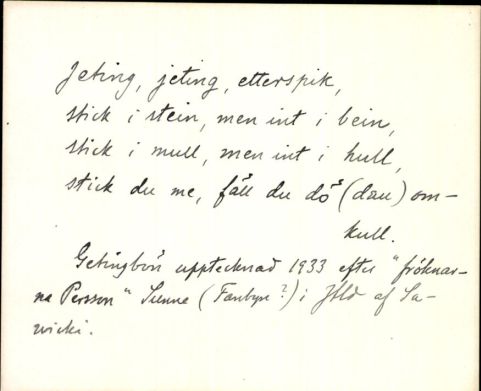 Jeting, jeting, etterspik,
stick i stein, men int i bein,
stick i mull, men int i hull,
stick du me, fäll du dö (dau) om-
kull.
Getingbön upptecknad 1933 efter "fröknar-
na Persson" Sunne (Fanbyn?) i Jtld af Sa-
wicki.